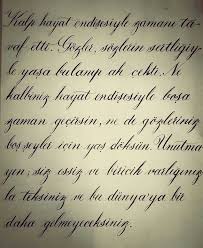 Kalp hayat endişesiyle zamanı ta-
vaf etti. Gözler, sözlerin sertliğiy-
le yaşa bulanıp ah çekti. Ne
kalbiniz hayat endişesiyle boşa
zaman geçirsin, ne de gözleriniz
boş şeyler için yaş döksün. Unutma
yın; siz eşsiz ve biricik varlığınız
la teksiniz ve bu dünya'ya bir
daha gelmeyeceksiniz.